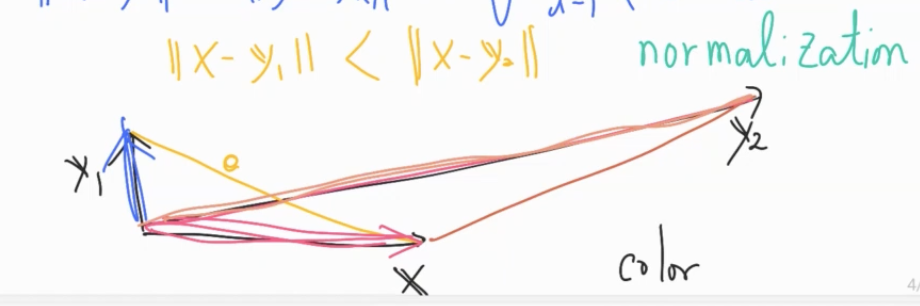 ||x-y₁|| < ||x-y₂||
normalization
y₁
e
y₂
x
color
4/